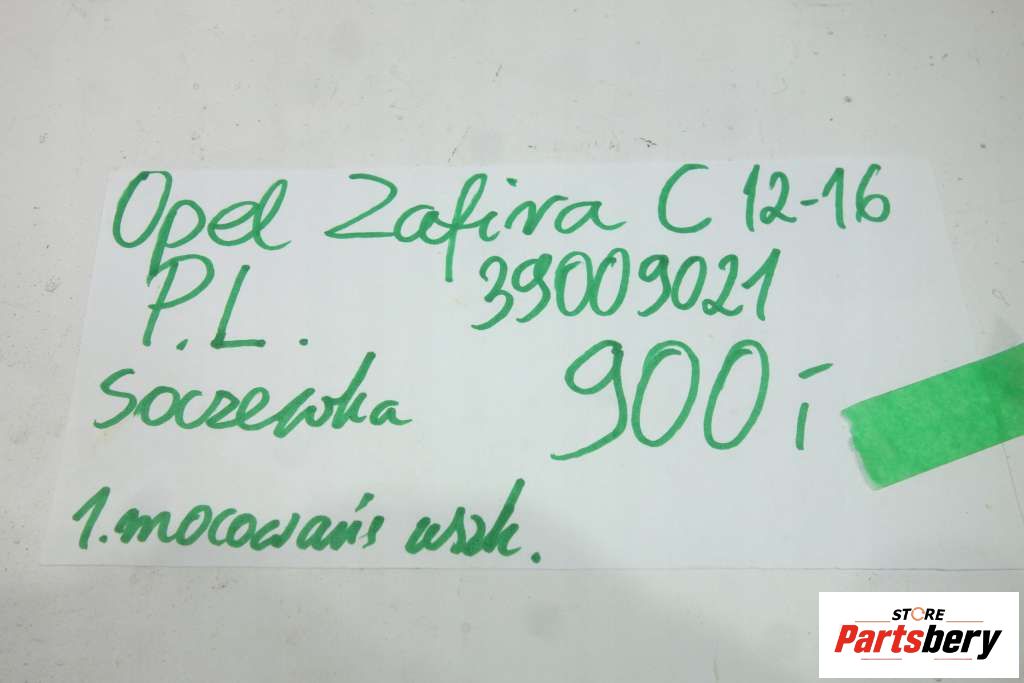 Opel Zafira C 12-16
P.L. 39009021
Soczewka 900i
1. mocowanie uszk.
STORE
Partsbery